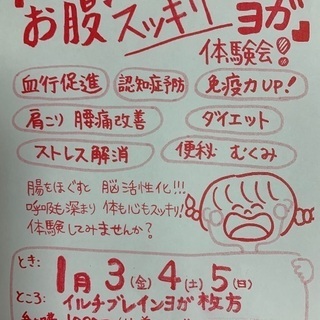 お腹スッキリヨガ
体験会!
血行促進 認知症予防 免疫力UP!
肩こり 腰痛改善 ダイエット
ストレス解消 便秘 むくみ
腸をほぐすと 脳活性化!!!
呼吸も深まり 体も心もスッキリ!
体験してみませんか?
とき:
1月3(金)4(土)5(日)
ところ:
イルチブレインヨガ 枚方